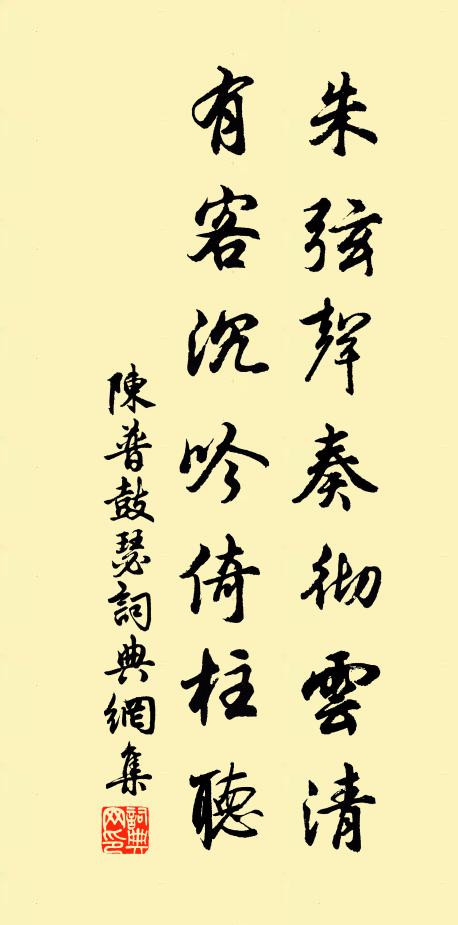 朱弦聲奏彻雲清
有客沉吟倚柱聽
陳普鼓瑟詞典網集
詞典
网印